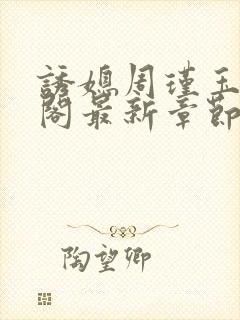 誘媳周瑾玉
閣最新章節
陶望卿